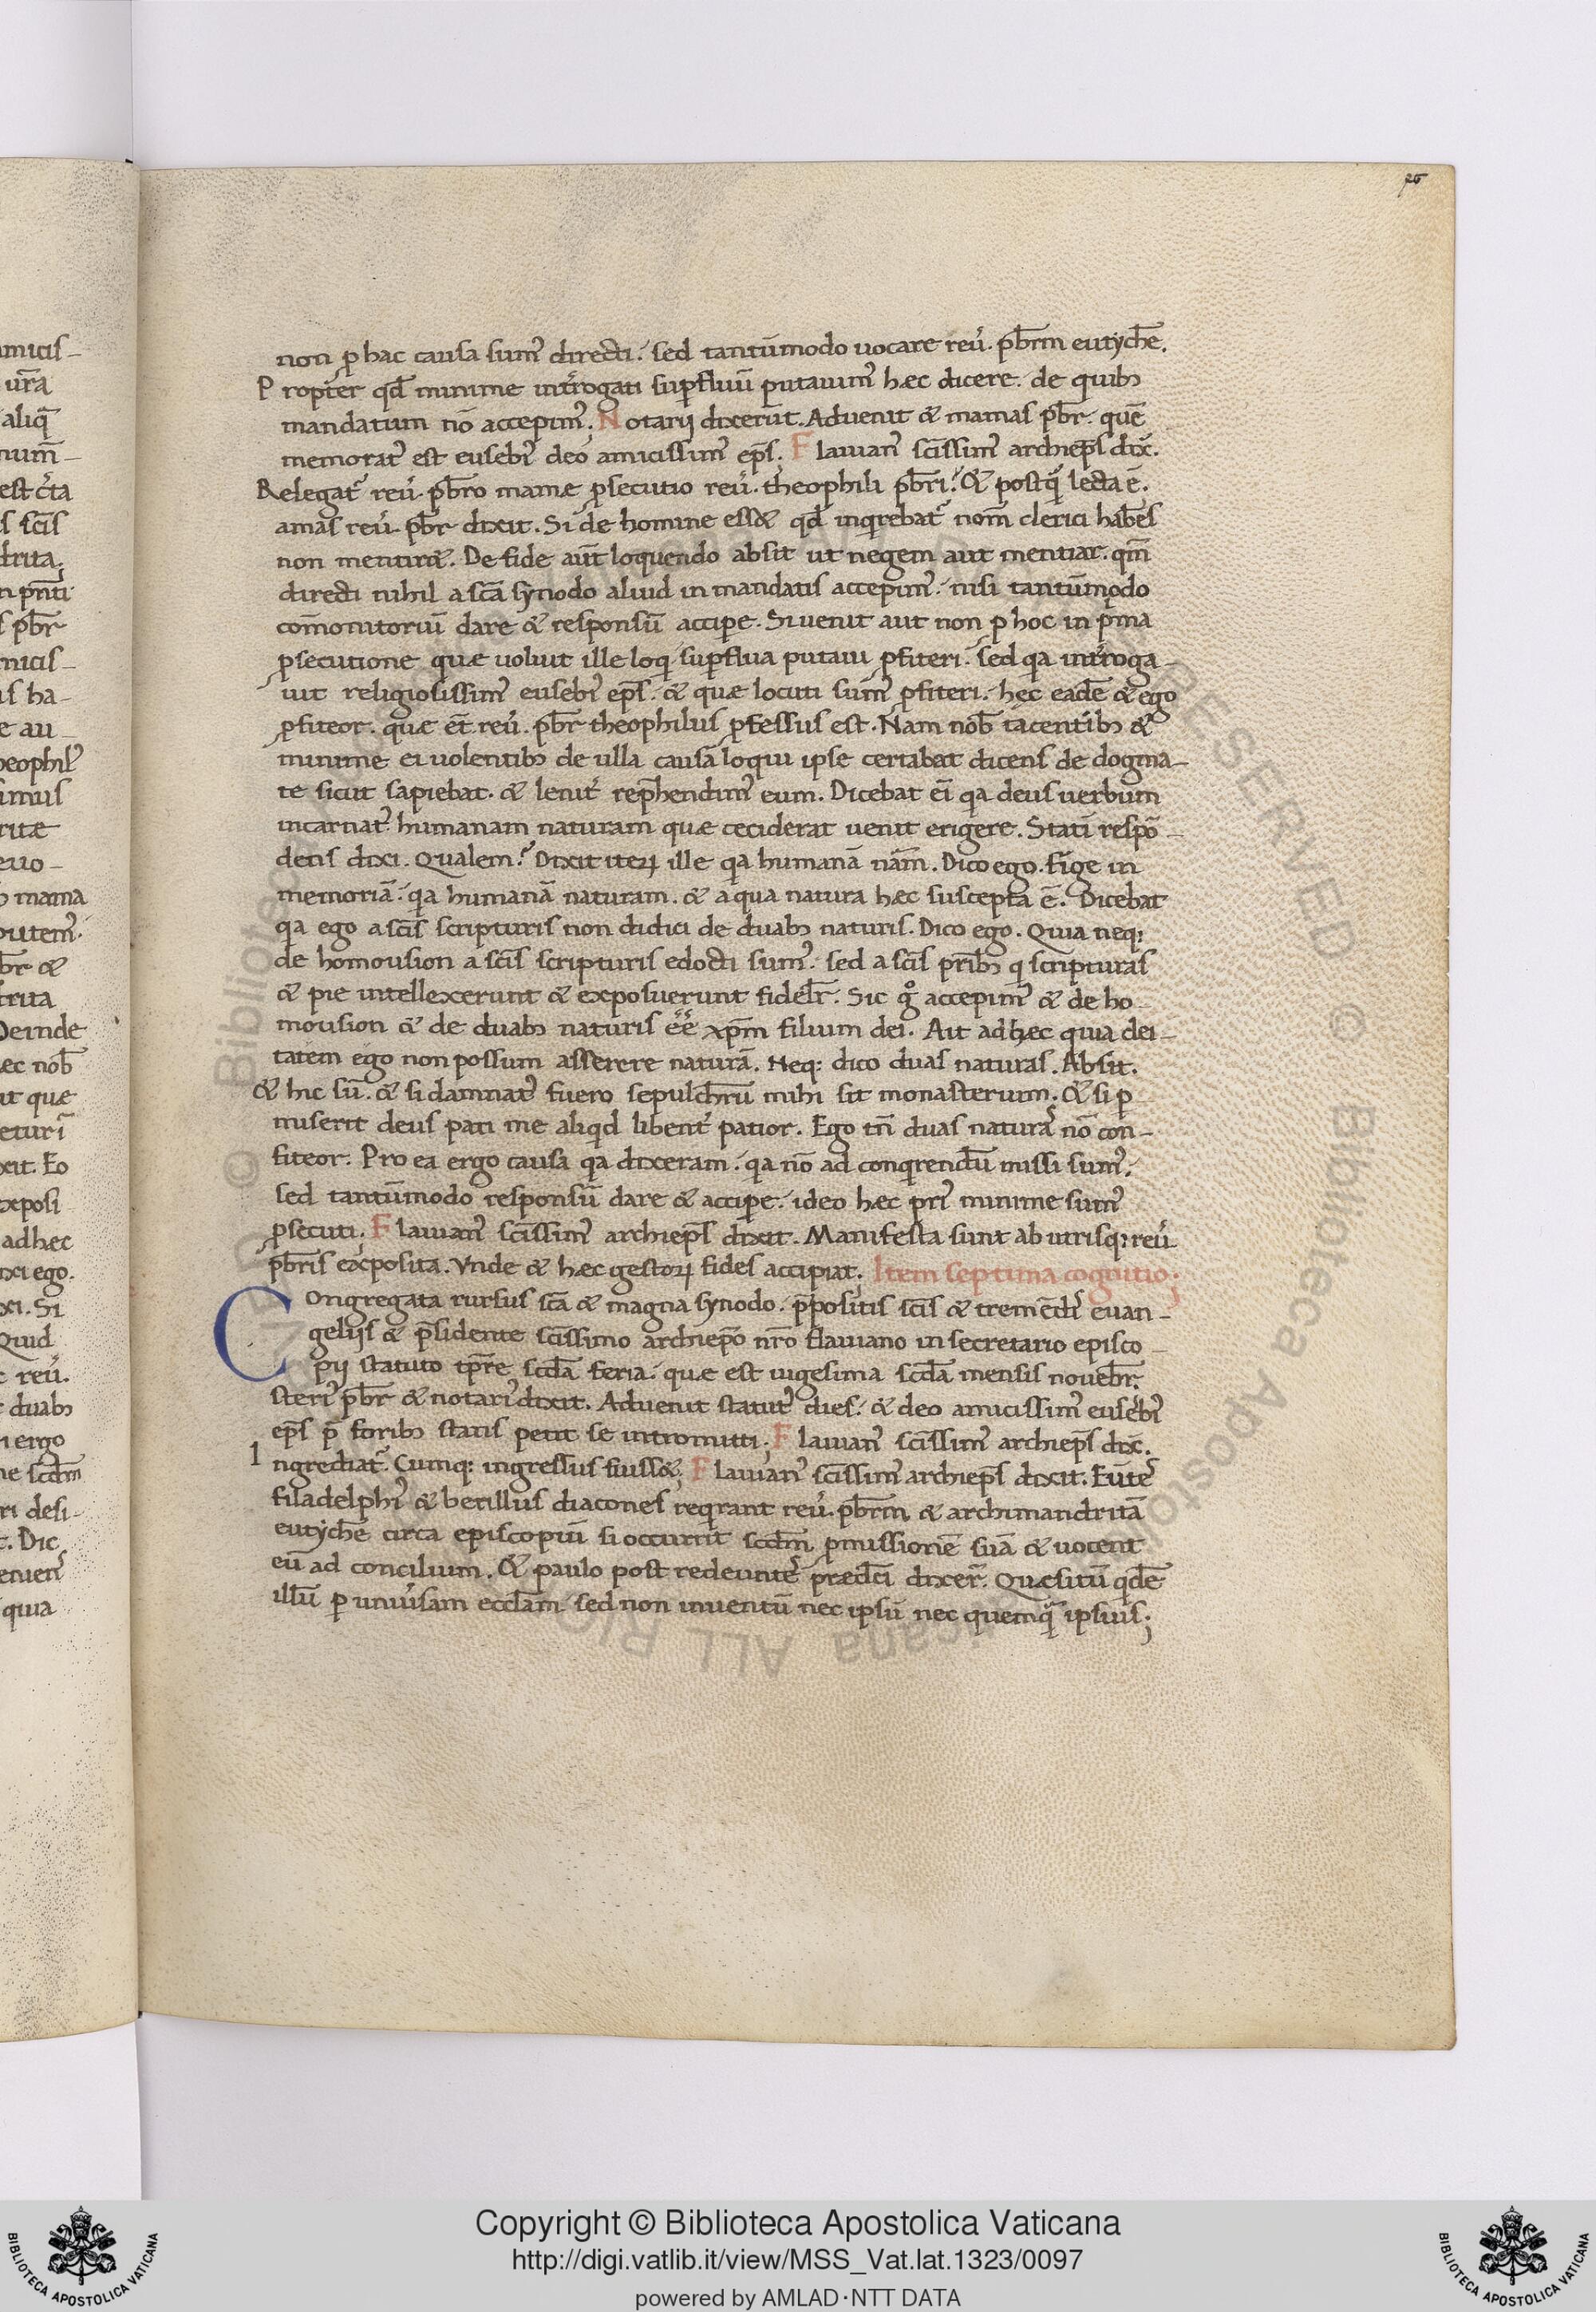 non ꝑ hac causa sum᷒ directi. sed tantūmodo uocare reu̓. p̄brm eutychē.
Propter qd̄ minime int̓rogati suꝑfluū putauim᷒ hæc dicere. de quibꝫ
mandatum nō accepim᷒. Notarij dixerūt. Aduenit & mamas p̄br. quē
memorat᷒ est eusebi᷒ deo amicissim᷒ ep̄s. Flauian᷒ sc̄issim᷒ archiep̄s dix̄.
Relegat᷒ reu̓. p̄bro mamæ ꝓsecutio reu̓. theophili p̄bri. & postꝗ̄ lecta ē.
amas reu̓. p̄br dixit. Si de homine ess& qd̄ inqͥrebat᷒ nom̄ clerici hab̄es
non mentirer&. De fide aūt loquendo absit ut negem aut mentiar. qm̄
directi nihil a sc̄a synodo aliud in mandatis accepim᷒. nisi tantūmodo
com̄onitoriū dare & responsū accipe. Si uenit aut non ꝑ hoc in pͥma
ꝓsecutione quæ uoluit ille loqͥ suꝑflua putaui ꝓfiteri. sed qͥa int̓roga-
uit religiosissim᷒ eusebi᷒ ep̄s. & quæ locuti sum᷒ ꝓfiteri. hęc eadē & ego
ꝓfiteor. quæ et̄ reu̓. p̄br theophilus ꝓfessus est. Nam nob̄ tacentibꝫ &
minime ei uolentibꝫ de ulla causa loqui ipse certabat dicens de dogma-
te sicut sapiebat. & lenit̓ rep̄hendim᷒ eum. Dicebat ei̅ qͥa deus uerbum
incarnat᷒ humanam naturam quæ ceciderat uenit erigere. Stati̅ respō-
dens dixi. Qualem? Dixit iteꝝ ille qͥa humanā nām. Dico ego. fige in
memoriā. qͥa humanā naturam. & a qua natura hæc suscepta ē. Dicebat
qͥa ego a sc̄is scripturis non didici de duabꝫ naturis. Dico ego. Quia neqꝫ
de homousion a sc̄is scripturis edocti sum᷒. sed a sc̄is pr̄ibꝫ qͥ scripturas
& pie intellexerunt & exposuerunt fidelr̄. Sic gͦ accepim᷒ & de ho-
mousion & de duabꝫ naturis ēē xp̄m filium dei. Ait ad hęc quia dei-
tatem ego non possum asserere naturā. Neqꝫ dico duas naturas. Absit.
& hic sū. & si damnat᷒ fuero sepulchrū mihi sit monasterium. & si ꝑ
miserit deus pati me aliqͥd libent̓ patior. Ego tn̄ duas natura᷒ nō con-
fiteor. Pro ea ergo causa qͥa dixeram. qͥa nō ad conqͥrendū missi sum᷒.
sed tantūmodo responsū dare & accipe. ideo hæc pri᷒ minime sum᷒
ꝓsecuti. Flauian᷒ sc̄issim᷒ archiep̄s dixit. Manifesta sunt ab utrisqꝫ reu̓
p̄bris exposita. Vnde & hæc gestoꝝ fides accipiat. Item septima cognitio;
Congregata rursus sc̄a & magna synodo. p̄positis sc̄is & tremēdi᷒ euan-
gelijs & p̄sidente sc̄issimo archiep̄o nr̄o flauiano in secretario episco-
pij statuto tp̄re scd̄a feria. quæ est uigesima scd̄a mensis nouēbr.
steri᷒ p̄br & notari᷒ dixit. Aduenit statut᷒ dies. & deo amicissim᷒ eusebi᷒
ep̄s p̄ foribꝫ stans petit se intromitti; Flauian᷒ sc̄issim᷒ archiep̄s dix̄.
Ingrediat᷒. Cumqꝫ ingressus fuiss&. Flauian᷒ sc̄issim᷒ archiep̄s dixit. Eūte᷒
filadelphi᷒ & berillus diacones reqͥrant reu̓. p̄brm & archimandritā
eutychē circa episcopiū si occurrit scd̄m ꝓmissionē suā & uocent
eū ad concilium. & paulo post redeunte᷒ præd̄ci dixer̄. Quæsitū qͥdē
illū ꝑ uniu̓sam eccl̄am sed non inuentū nec ipsū nec quemꝗ̄ ipsius;
Copyright © Biblioteca Apostolica Vaticana
http://digi.vatlib.it/view/MSS_Vat.lat.1323/0097
powered by AMLAD·NTT DATA